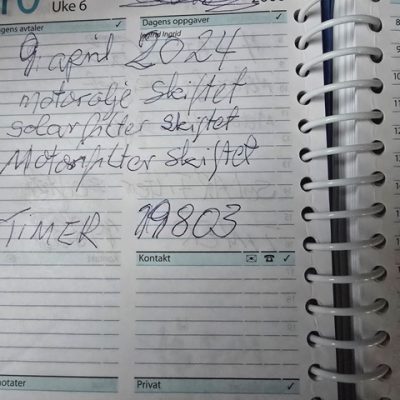 10 Uke 6
gens avtaler Dagens oppgaver
Ingrid
9. april 2024
motorolje skiftet
solarfilter skiftet
Motorfilter skiftet
TIMER 19803
Kontakt
notater Privat